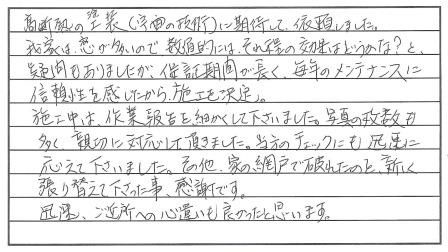 高断熱の塗装(宇宙の技術)に期待して、依頼しました。
我家は、窓が多いので数値的には、それ程の効果はどうかな?と、
疑問もありましたが、保証期間が長く、毎年のメンテナンスに
信頼性を感じたから、施工を決定。
施工中は、作業報告を細かくして下さいました。写真の枚数も
多く、親切に対応して頂きました。当方のチェックにも迅速に
応えて下さいました。その他、家の網戸で破れたのを、新しく
張り替えて下さった事、感謝です。
迅速、ご近所への心遣いも良かったと思います。